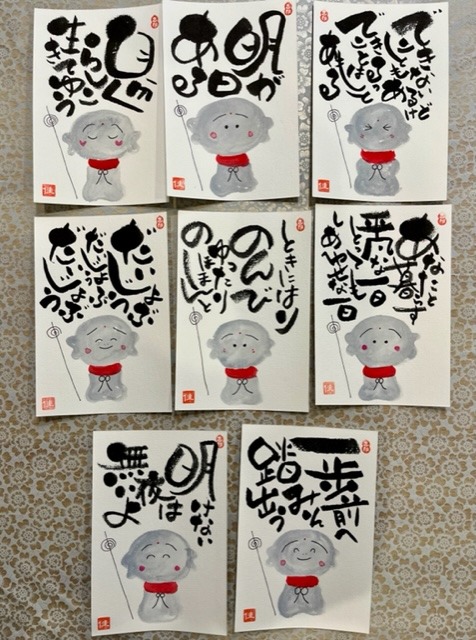 自分らしく
生きてゆこう
明日が
ある
できないことも
あるけど
できることはきっと
ある
だいじょうぶ
だいじょうぶ
だいじょうぶ
ときには
のんびり
ゆったり
のほほんと
あなたと
暮らす
な一日
しあわせな一日
明けない
夜は
無いよ
一歩前へ
踏み出そう